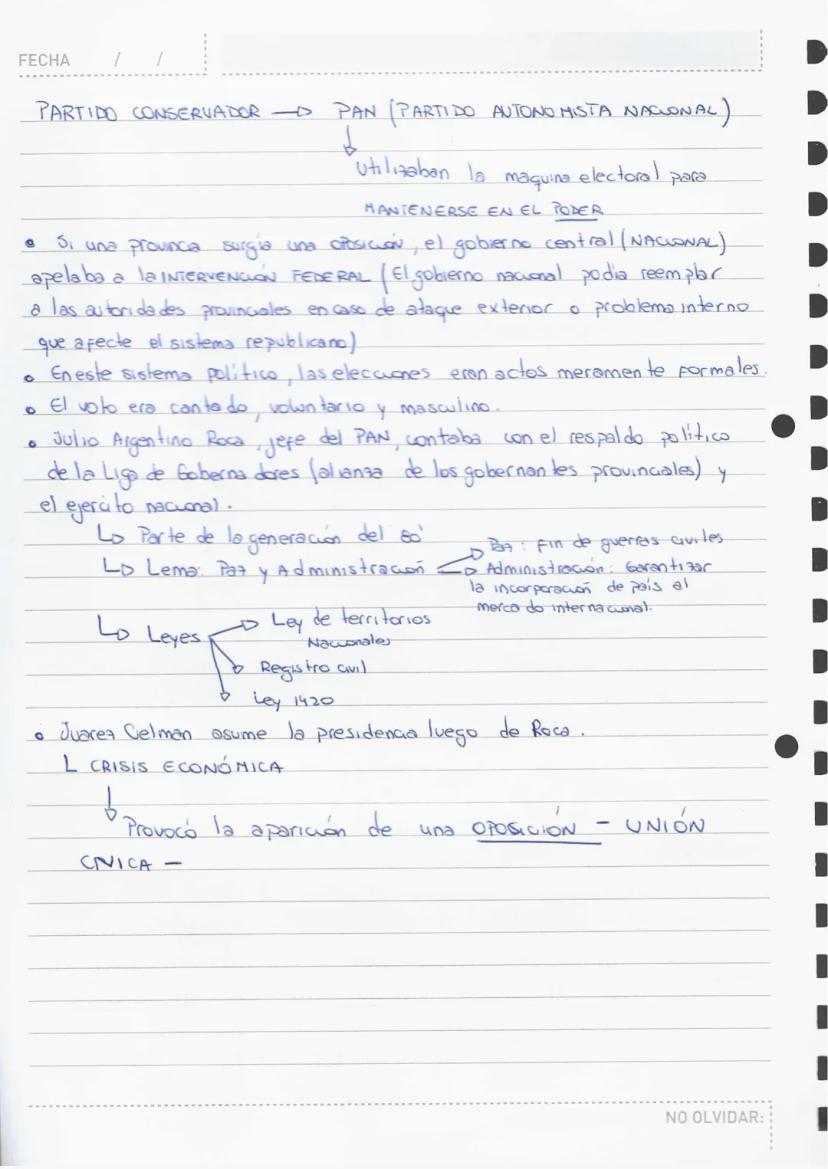 FECHA / /
PARTIDO CONSERVADOR → PAN (PARTIDO AUTONOMISTA NACIONAL)
Utilizaban la maquina electoral para
MANTENERSE EN EL PODER
• Si una provincia surgia una oposición, el gobierno central (NACIONAL)
apelaba a la INTERVENCIÓN FEDERAL (El gobierno nacional podia reemplar
a las autoridades provinciales en caso de ataque exterior o problema interno
que afecte el sistema republicano)
• En este sistema político, las elecciones eran actos meramente formales.
• El voto era cantado, voluntario y masculino.
• Julio Argentino Roca, jefe del PAN, contaba con el respaldo político
de la Liga de Gobernadores (alianza de los gobernantes provinciales) y
el ejercito nacional.
↳ Parte de la generación del 80'
↳ Lema: Paz y Administración
→ Paz: fin de guerras civiles
→ Administración: Garantizar
la incorporación de país al
mercado internacional.
↳ Leyes → Ley de territorios
Nacionales
Registro civil
Ley 1420
• Juarez Celman asume la presidencia luego de Roca.
L CRISIS ECONÓMICA
Provocó la aparición de una OPOSICIÓN - UNIÓN
CIVICA -
NO OLVIDAR: